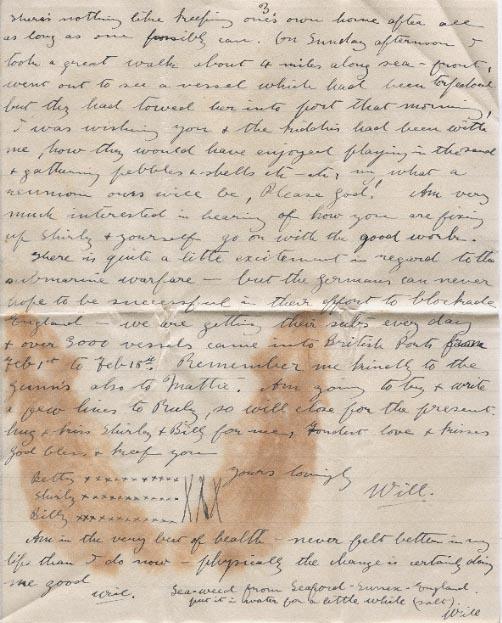 3
There's nothing like keeping one's own home after all
as long as one possibly can. On Sunday afternoon I
took a great walk about 4 miles along sea-front,
went out to see a vessel which had been torpedoed
but they had towed her into port that morning,
I was wishing you & the kiddies had been with
me, how they would have enjoyed playing in the sand
& gathering pebbles & shells etc-etc, my what a
reunion ours will be, Please God! Am very
much interested in hearing of how you are fixing
up Shirly & yourself go on with the good work.
There is quite a little excitement in regard to the
submarine warfare - but the Germans can never
hope to be successful in their effort to blockade
England - we are getting their subs every day
& over 9000 vessels came into British Ports from
Feb 1st to Feb 18th. Remember me kindly to the
also to Mattie. Am going to try & write
a few lines to Ruby, so will close for the present.
hug & kiss Shirly & Billy for me, Fondest love & kisses
God bless & keep you
Yours lovingly
Will.
Betty xxxxxxxxxxx
Shirly xxxxxxxxxxx
Billy xxxxxxxxxxx
XXX
Am in the very best of health - never felt better in my
life than I do now - physically the change is certainly doing
me good
Will.
Sea-weed from Seaford-Sussex-England.
put it in water for a little while (salt).
Will